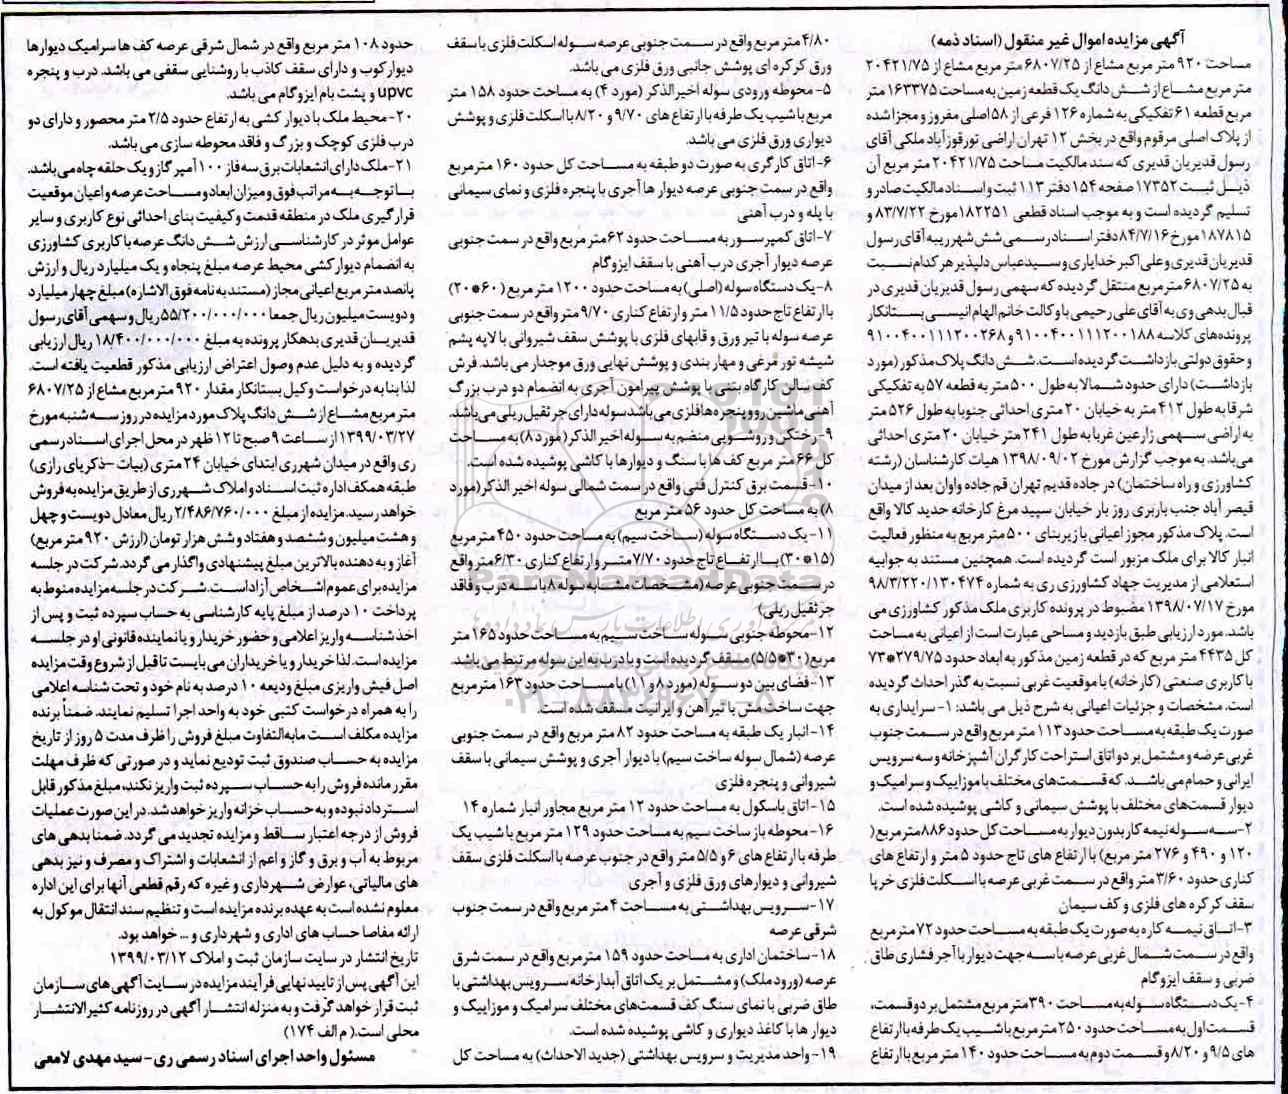 آگهی مزایده اموال غیر منقول (اسناد ذمه)
مساحت ۹۲۰ متر مربع مشاع از ۶۸۰۷/۲۵ متر مربع مشاع از ۲۰۴۲۱/۷۵
متر مربع مشاع از شش دانگ یک قطعه زمین به مساحت ۱۶۳۳۷۵ متر
مربع قطعه ۶۱ تفکیکی به شماره ۱۲۶ فرعی از ۵۸ اصلی مفروز و مجزا شده
از پلاک اصلی مرقوم واقع در بخش ۱۲ تهران اراضی تورقوزآباد ملکی آقای
رسول قدیریان قدیری که سند مالکیت مساحت ۲۰۴۲۱/۷۵ متر مربع آن
ذیل ثبت ۱۷۳۵۲ صفحه ۱۵۴ دفتر ۱۱۳ ثبت و اسناد مالکیت صادر و
تسلیم گردیده است و به موجب اسناد قطعی ۱۸۲۲۵۱ مورخ ۸۳/۷/۲۲ و
۱۸۷۸۱۵ مورخ ۸۴/۷/۱۶ دفتر اسناد رسمی شش شهرری به آقای رسول
قدیریان قدیری و علی اکبر خدایاری و سید عباس دلپذیر هر کدام نسبت
به ۶۸۰۷/۲۵ متر مربع منتقل گردیده که سهمی رسول قدیریان قدیری در
قبال بدهی وی به آقای علی رحیمی با وکالت خانم الهام انیسی بستانکار
پرونده‌های کلاسه ۹۱۰۰۴۰۰۱۱۱۲۰۰۱۸۸ و ۹۱۰۰۴۰۰۱۱۱۲۰۰۲۶۸
و حقوق دولتی بازداشت گردیده است. شش دانگ پلاک مذکور (مورد
بازداشت) دارای حدود شمالا به طول ۵۰۰ متر به قطعه ۵۷ به تفکیکی
شرقا به طول ۴۱۲ متر به خیابان ۲۰ متری احداثی جنوبا به طول ۵۲۶ متر
به اراضی سهمی زارعین غربا به طول ۲۴۱ متر خیابان ۲۰ متری احداثی
می‌باشد. به موجب گزارش مورخ ۱۳۹۸/۰۹/۰۲ هیات کارشناسان (رشته
کشاورزی و راه ساختمان) در جاده قدیم تهران قم جاده واوان بعد از میدان
قیصر آباد جنب باربری روز بار خیابان سپید مرغ کارخانه حدید کالا واقع
است. پلاک مذکور مجوز اعیانی با زیربنای ۵۰۰ متر مربع به منظور فعالیت
انبار کالا برای ملک مزبور است گردیده است. همچنین مستند به جوابیه
استعلامی از مدیریت جهاد کشاورزی ری به شماره ۹۸/۳/۲۲۰/۱۳۰۴۷۴
مورخ ۱۳۹۸/۰۷/۱۷ مضبوط در پرونده کاربری ملک مذکور کشاورزی می
باشد. مورد ارزیابی طبق بازدید و مساحی عبارت است از اعیانی به مساحت
کل ۴۴۳۵ متر مربع که در قطعه زمین مذکور به ابعاد حدود ۲۷۹/۷۵*۷۳
با کاربری صنعتی (کارخانه) با موقعیت غربی نسبت به گذر احداث گردیده
است. مشخصات و جزئیات اعیانی به شرح ذیل می باشد: ۱- سرایداری به
صورت یک طبقه به مساحت حدود ۱۱۳ متر مربع واقع در سمت جنوب
غربی عرضه و مشتمل بر دو اتاق استراحت کارگران آشپزخانه و سه سرویس
ایرانی و حمام می باشد. که قسمت‌های مختلف با موزاییک و سرامیک و
دیوار قسمت‌های مختلف با پوشش سیمانی و کاشی پوشیده شده است.
۲- سه سوله نیمه کاره بدون دیوار به مساحت کل حدود ۸۸۶ متر مربع (
۱۲۰ و ۴۹۰ و ۲۷۶ متر مربع) با ارتفاع های تاج حدود ۵ متر و ارتفاع های
کناری حدود ۳/۶۰ متر واقع در سمت غربی عرصه با اسکلت فلزی خرپا
سقف کرکره های فلزی و کف سیمان
۳- اتاق نیمه کاره به صورت یک طبقه به مساحت حدود ۷۲ متر مربع
واقع در سمت شمال غربی عرصه با سه جهت دیوار با آجر فشاری طاق
ضربی و سقف ایزوگام
۴- یک دستگاه سوله به مساحت ۳۹۰ متر مربع مشتمل بر دو قسمت،
قسمت اول به مساحت حدود ۲۵۰ متر مربع با شیب یک طرفه با ارتفاع
های ۹/۵ و ۸/۲۰ و قسمت دوم به مساحت حدود ۱۴۰ متر مربع با ارتفاع
۴/۸۰ متر مربع واقع در سمت جنوبی عرصه سوله اسکلت فلزی با سقف
ورق کرکره ای پوشش جانبی ورق فلزی می باشد.
۵- محوطه ورودی سوله اخیرالذکر (مورد ۴) به مساحت حدود ۱۵۸ متر
مربع با شیب یک طرفه با ارتفاع های ۹/۷۰ و ۸/۲۰ با اسکلت فلزی و پوشش
دیواری ورق فلزی می باشد.
۶- اتاق کارگری به صورت دو طبقه به مساحت کل حدود ۱۶۰ متر مربع
واقع در سمت جنوبی عرصه دیوار ها آجری با پنجره فلزی و نمای سیمانی
با پله و درب آهنی
۷- اتاق کمپرسور به مساحت حدود ۶۲ متر مربع واقع در سمت جنوبی
عرصه دیوار آجری درب آهنی با سقف ایزوگام
۸- یک دستگاه سوله (اصلی) به مساحت حدود ۱۲۰۰ متر مربع (۶۰*۲۰)
با ارتفاع تاج حدود ۱۱/۵ متر و ارتفاع کناری ۹/۷۰ متر واقع در سمت جنوبی
عرصه سوله با تیر ورق و قابهای فلزی با پوشش سقف شیروانی با لایه پشم
شیشه تور مرغی و مهار بندی و پوشش نهایی ورق موجدار می باشد. فرش
کف سالن کارگاه بتنی با پوشش پیرامون آجری به انضمام دو درب بزرگ
آهنی ماشین رو و پنجره ها فلزی می باشد سوله دارای جرثقیل ریلی می باشد.
۹- رختکن و روشویی منضم به سوله اخیر الذکر (مورد ۸) به مساحت
کل ۶۶ متر مربع کف ها با سنگ و دیوارها با کاشی پوشیده شده است.
۱۰- قسمت برق کنترل فنی واقع در سمت شمالی سوله اخیر الذکر (مورد
۸) به مساحت کل حدود ۵۶ متر مربع
۱۱- یک دستگاه سوله (ساخت سیم) به مساحت حدود ۴۵۰ متر مربع
(۱۵*۳۰) با ارتفاع تاج حدود ۷/۷۰ متر و ارتفاع کناری ۶/۳۰ متر واقع
در سمت جنوبی عرصه (مشخصات مشابه سوله ۸ با سه درب و فاقد
جرثقیل ریلی)
۱۲- محوطه جنوبی سوله ساخت سیم به مساحت حدود ۱۶۵ متر
مربع (۳۰*۵/۵) مسقف گردیده است و با درب به این سوله مرتبط می باشد.
۱۳- فضای بین دو سوله (مورد ۸ و ۱۱) با مساحت حدود ۱۶۳ متر مربع
جهت ساخت مش با تیرآهن و ایرانیت مسقف شده است.
۱۴- انبار یک طبقه به مساحت حدود ۸۲ متر مربع واقع در سمت جنوبی
عرصه (شمال سوله ساخت سیم) با دیوار آجری و پوشش سیمانی با سقف
شیروانی و پنجره فلزی
۱۵- اتاق باسکول به مساحت حدود ۱۲ متر مربع مجاور انبار شماره ۱۴
۱۶- محوطه باز ساخت سیم به مساحت حدود ۱۲۹ متر مربع با شیب یک
طرفه با ارتفاع های ۶ و ۵/۵ متر واقع در جنوب عرصه با اسکلت فلزی سقف
شیروانی و دیوارهای ورق فلزی و آجری
۱۷- سرویس بهداشتی به مساحت ۴ متر مربع واقع در سمت جنوب
شرقی عرصه
۱۸- ساختمان اداری به مساحت حدود ۱۵۹ مترمربع واقع در سمت شرق
عرصه (ورود ملک) و مشتمل بر یک اتاق آبدارخانه سرویس بهداشتی با
طاق ضربی با نمای سنگ کف قسمت‌های مختلف سرامیک و موزاییک و
دیوار ها با کاغذ دیواری و کاشی پوشیده شده است.
۱۹- واحد مدیریت و سرویس بهداشتی (جدید الاحداث) به مساحت کل
حدود ۱۰۸ متر مربع واقع در شمال شرقی عرصه کف ها سرامیک دیوارها
دیوارکوب و دارای سقف کاذب با روشنایی سقفی می باشد. درب و پنجره
upvc و پشت بام ایزوگام می باشد.
۲۰- محیط ملک با دیوار کشی به ارتفاع حدود ۲/۵ متر محصور و دارای دو
درب فلزی کوچک و بزرگ و فاقد محوطه سازی می باشد.
۲۱- ملک دارای انشعابات برق سه فاز ۱۰۰ آمپر گاز و یک حلقه چاه می باشد.
با توجه به مراتب فوق و میزان ابعاد و مساحت عرصه و اعیان موقعیت
قرارگیری ملک در منطقه قدمت و کیفیت بنای احداثی نوع کاربری و سایر
عوامل موثر در کارشناسی ارزش شش دانگ عرصه با کاربری کشاورزی
به انضمام دیوار کشی محیط عرصه مبلغ پنجاه و یک میلیارد ریال و ارزش
پانصد متر مربع اعیانی مجاز (مستند به نامه فوق الاشاره) مبلغ چهار میلیارد
و دویست میلیون ریال جمعا ۵۵/۲۰۰/۰۰۰/۰۰۰ ریال و سهمی آقای رسول
قدیریان قدیری بدهکار پرونده به مبلغ ۱۸/۴۰۰/۰۰۰/۰۰۰ ریال ارزیابی
گردیده و به دلیل عدم وصول اعتراض ارزیابی مذکور قطعیت یافته است.
لذا بنا به درخواست وکیل بستانکار مقدار ۹۲۰ متر مربع مشاع از ۶۸۰۷/۲۵
متر مربع مشاع از شش دانگ پلاک مورد مزایده در روز سه شنبه مورخ
۱۳۹۹/۰۳/۲۷ از ساعت ۹ صبح تا ۱۲ ظهر در محل اجرای اسناد رسمی
ری واقع در میدان شهرری ابتدای خیابان ۲۴ متری (بیات - ذکریای رازی)
طبقه همکف اداره ثبت اسناد و املاک شهرری از طریق مزایده به فروش
خواهد رسید. مزایده از مبلغ ۲/۴۸۶/۷۶۰/۰۰۰ ریال معادل دویست و چهل
و هشت میلیون و ششصد و هفتاد و شش هزار تومان (ارزش ۹۲۰ متر مربع)
آغاز و به دهنده بالاترین مبلغ پیشنهادی واگذار می گردد. شرکت در جلسه
مزایده برای عموم اشخاص آزاد است. شرکت در جلسه مزایده منوط به
پرداخت ۱۰ درصد از مبلغ پایه کارشناسی به حساب سپرده ثبت و پس از
اخذ شناسه واریز اعلامی و حضور خریدار و یا نماینده قانونی او در جلسه
مزایده است. لذا خریدار و یا خریداران می بایست تا قبل از شروع وقت مزایده
اصل فیش واریزی مبلغ ودیعه ۱۰ درصد به نام خود و تحت شناسه اعلامی
را به همراه درخواست کتبی خود به واحد اجرا تسلیم نمایند. ضمناً برنده
مزایده مکلف است مابه‌التفاوت مبلغ فروش را ظرف مدت ۵ روز از تاریخ
مزایده به حساب صندوق ثبت تودیع نماید و در صورتی که ظرف مهلت
مقرر مانده فروش را به حساب سپرده ثبت واریز نکند، مبلغ مذکور قابل
استرداد نبوده و به حساب خزانه واریز خواهد شد. در این صورت عملیات
فروش از درجه اعتبار ساقط و مزایده تجدید می گردد. ضمنا بدهی های
مربوط به آب و برق و گاز و اعم از انشعابات و اشتراک و مصرف و نیز بدهی
های مالیاتی، عوارض شهرداری و غیره که رقم قطعی آنها برای این اداره
معلوم نشده است به عهده برنده مزایده است و تنظیم سند انتقال موکول به
ارائه مفاصا حساب های اداری و شهرداری و ... خواهد بود.
تاریخ انتشار در سایت سازمان ثبت و املاک ۱۳۹۹/۰۳/۱۲
این آگهی پس از تایید نهایی فرآیند مزایده در سایت آگهی های سازمان
ثبت قرار خواهد گرفت و به منزله انتشار آگهی در روزنامه کثیرالانتشار
محلی است. (م الف ۱۷۴)
مسئول واحد اجرای اسناد رسمی ری- سید مهدی لامعی
ParsNamadData
۰۲۱-۸۸۳۴۹۶۷۰-۵